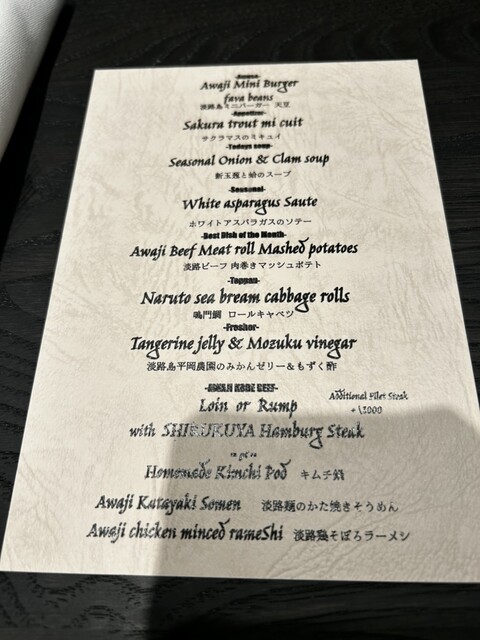 Awaji Mini Burger
fava beans
淡路島ミニバーガー 天豆
-Appetizer-
Sakura trout mi cuit
サクラマスのミキュイ
-Todays soup-
Seasonal Onion & Clam soup
新玉葱と蛤のスープ
-Seasonal-
White asparagus Saute
ホワイトアスパラガスのソテー
-Best Dish of the Month-
Awaji Beef Meat roll Mashed potatoes
淡路ビーフ 肉巻きマッシュポテト
-Teppan-
Naruto sea bream cabbage rolls
鳴門鯛 ロールキャベツ
-Fresher-
Tangerine jelly & Mozuku vinegar
淡路島平岡農園のみかんゼリー＆もずく酢
-AWAJI KOBE BEEF-
Additional Filet Steak
Loin or Rump
+ \2000
with SHIKUKUYA Hamburg Steak
Homemade Kimchi Pod キムチ鍋
Awaji Katayaki Somen 淡路麺のかた焼きそうめん
Awaji chicken minced rameShi 淡路鶏そぼろラーメシ